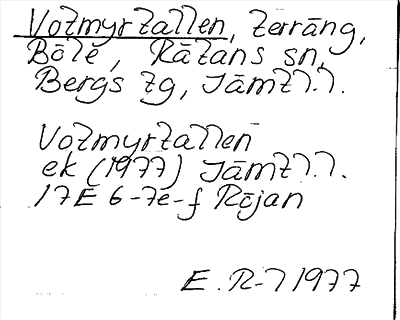 Votmyrtallen, terräng,
Böle, Rätans sn,
Bergs tg, Jämtl.l.
Votmyrtallen
ek (1977) Jämtl.l.
17E 6-7e-f Röjan
E.R-l 1977